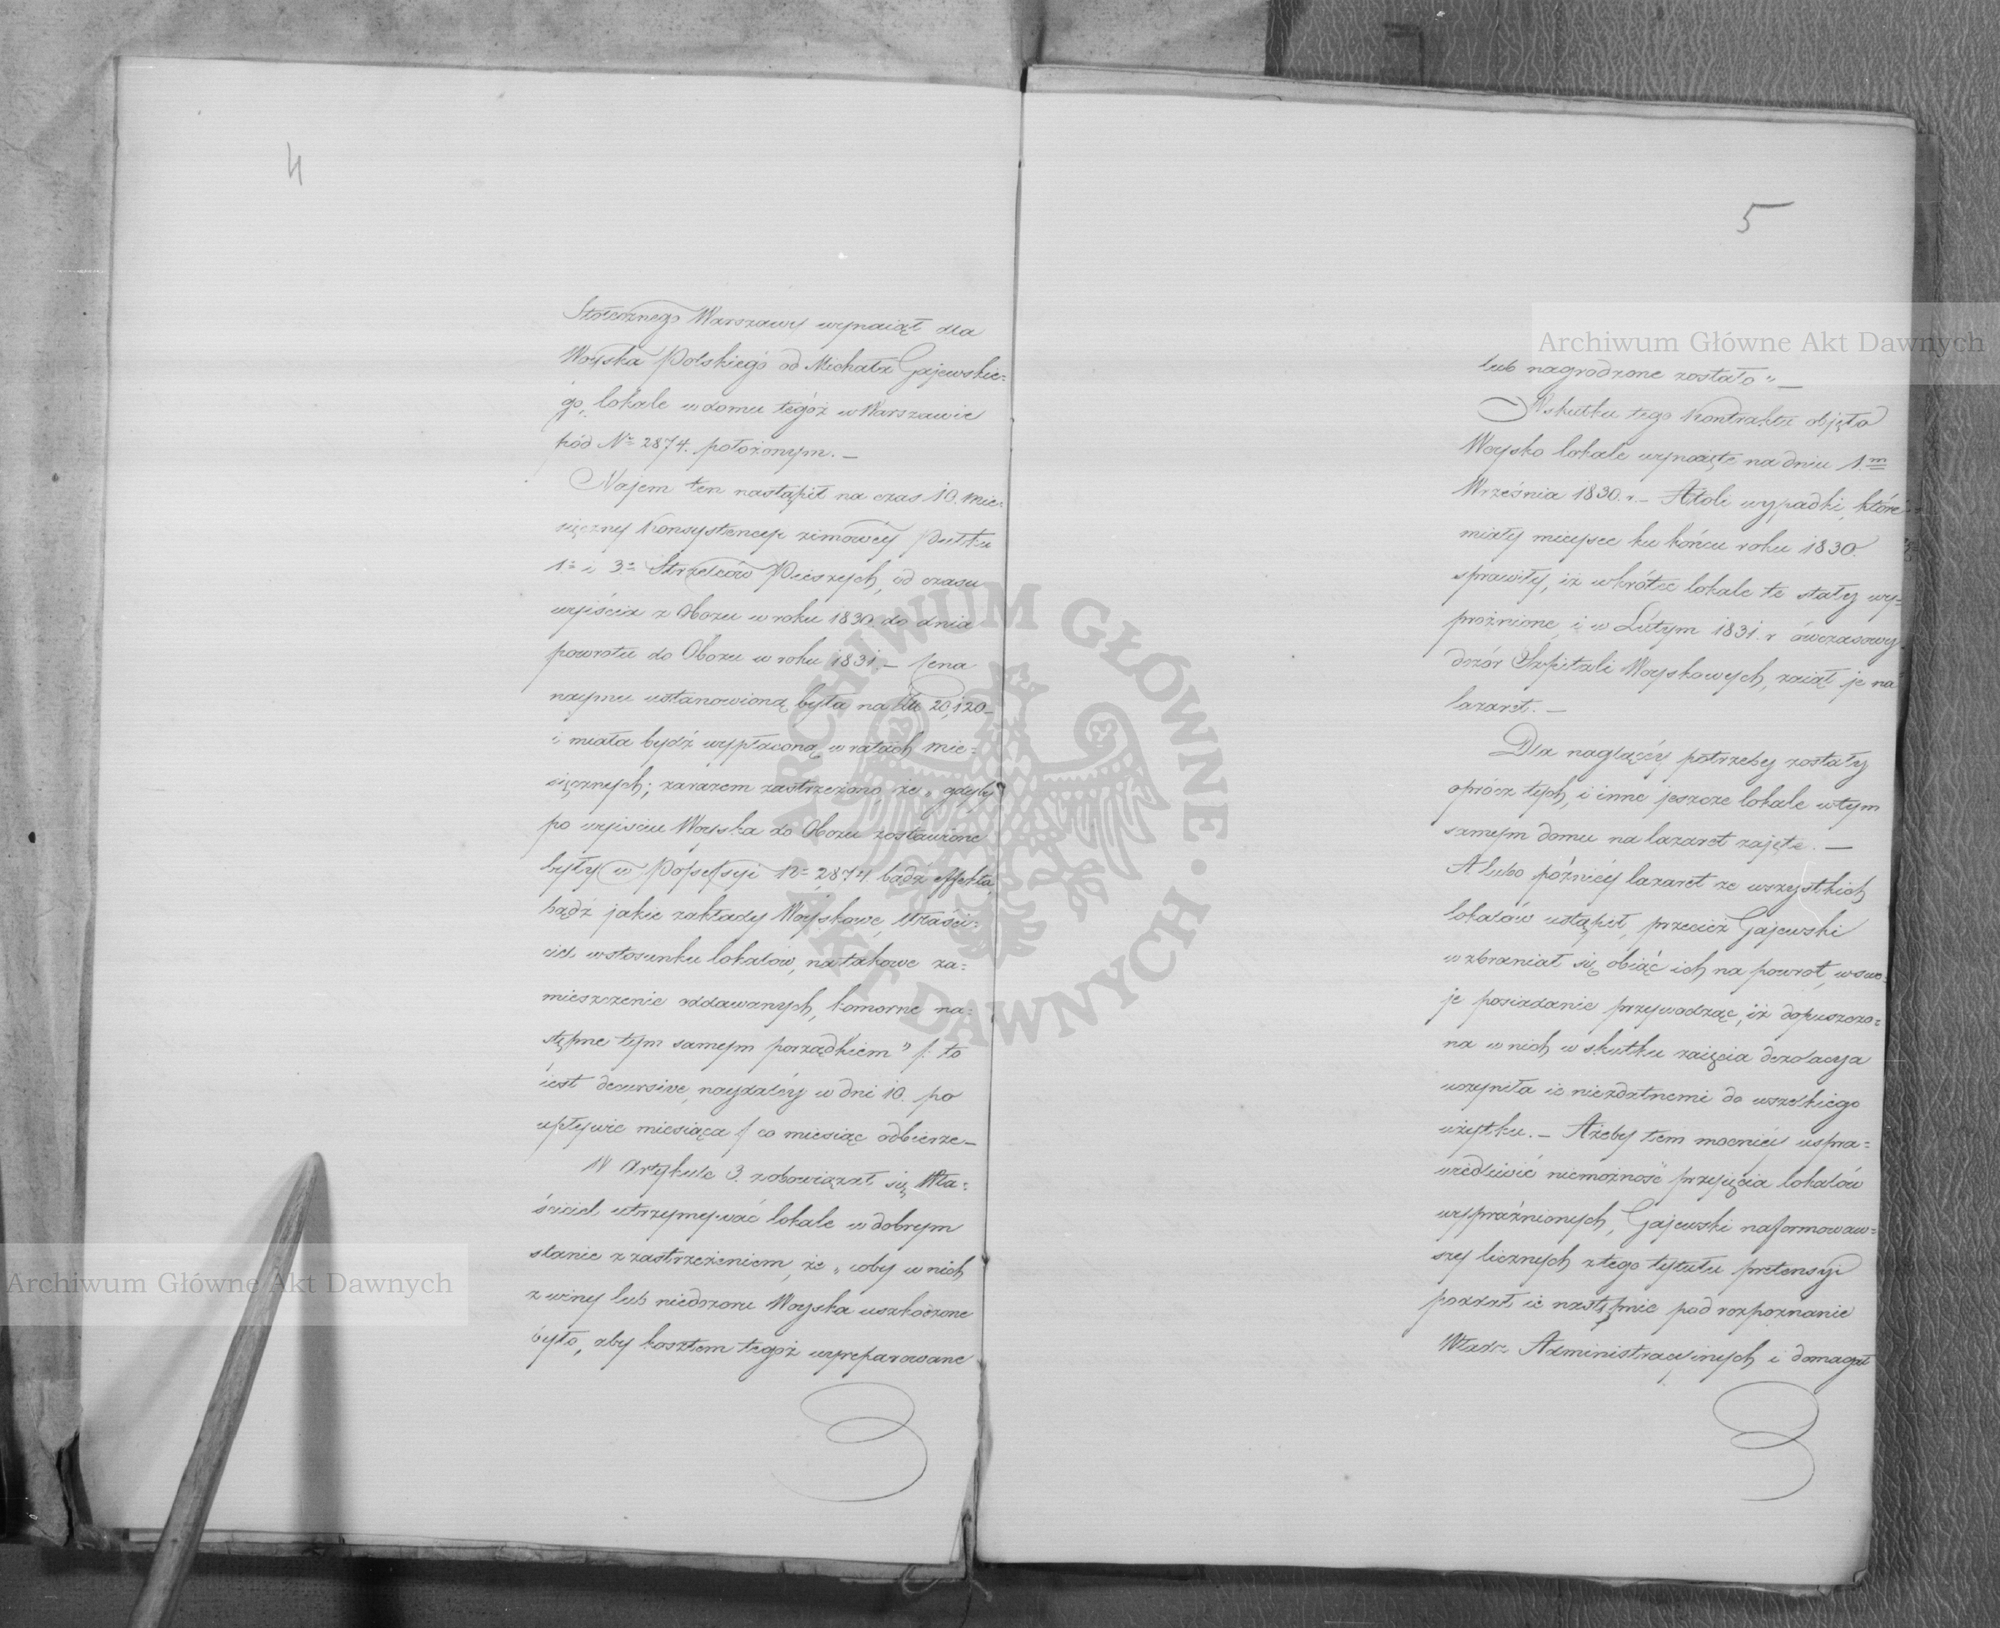 4
Stołecznego Warszawy wynaiął dla
Woyska Polskiego od Michała Gajewskie=
go, lokale w domu tegóż w Warszawie
pód Nr 2874. położonym. —
Najem ten nastąpił na czas 10. mie=
sięczney Konsystencyi zimowéy Pułku
1o i 3o Strzelców Pieszych, od czasu
wyiścia z Obozu w roku 1830. do dnia
powrotu do Obozu w roku 1831. — Cena
naymu ustanowioną była na 20,120 —
i miała bydź wypłaconą w ratach mie=
sięcznych; zarazem zastrzeżono, że „gdyby
po wyiściu Woyska do Obozu zostawione
były w Possessyi Nr 2874 bądź effekta,
bądź jakie zakłady Woyskowe, Właści=
ciel w stosunku lokalów, na takowe za=
mieszczenie oddawanych, komorne na=
stępne tym samym porządkiem" /: to
iest decursive, naydaléy w dni 10. po
upływie miesiąca / co miesiąc odbierze —
W Artykule 3. zobowiązał się Wła=
ściciel utrzymywać lokale w dobrym
stanie z zastrzeżeniem, że „coby w nich
z winy lub niedozoru Woyska uszkodzone
było, aby kosztem tegóż wyreparowane
5
lub nagrodzone zostało" —
W skutku tego Kontraktu objęło
Woysko lokale wynaięte na dniu 1m
Września 1830. r. — Atoli wypadki, które
miały mieysce ku końcu roku 1830.
sprawiły, iż wkrótce lokale te stały wy=
próżnione, i w Lutym 1831. r ówczasowy
dozór Szpitali Woyskowych, zaiął je na
lazaret. —
Dla naglącéy potrzeby zostały
oprócz tych, i inne jeszcze lokale w tym
samym domu na lazaret zajęte. —
A lubo późniéy lazaret ze wszystkich
lokalów ustąpił, przecież Gajewski
wzbraniał się obiąć ich na powrót, w swo=
je posiadanie przywodząc, iż dopuszczo=
na w nich w skutku zaięcia dezolacya
uczyniła ie niezdatnemi do wszelkiego
użytku. — Ażeby tem mocniéy uspra=
wiedliwić niemożność przyięcia lokalów
wypróżnionych, Gajewski naformowaw=
szy licznych z tego tytułu pretensyi
poddał ie następnie pod rozpoznanie
Władz Administracyinych i domagał
Archiwum Główne Akt Dawnych
Archiwum Główne Akt Dawnych
ARCHIWUM GŁÓWNE AKT DAWNYCH